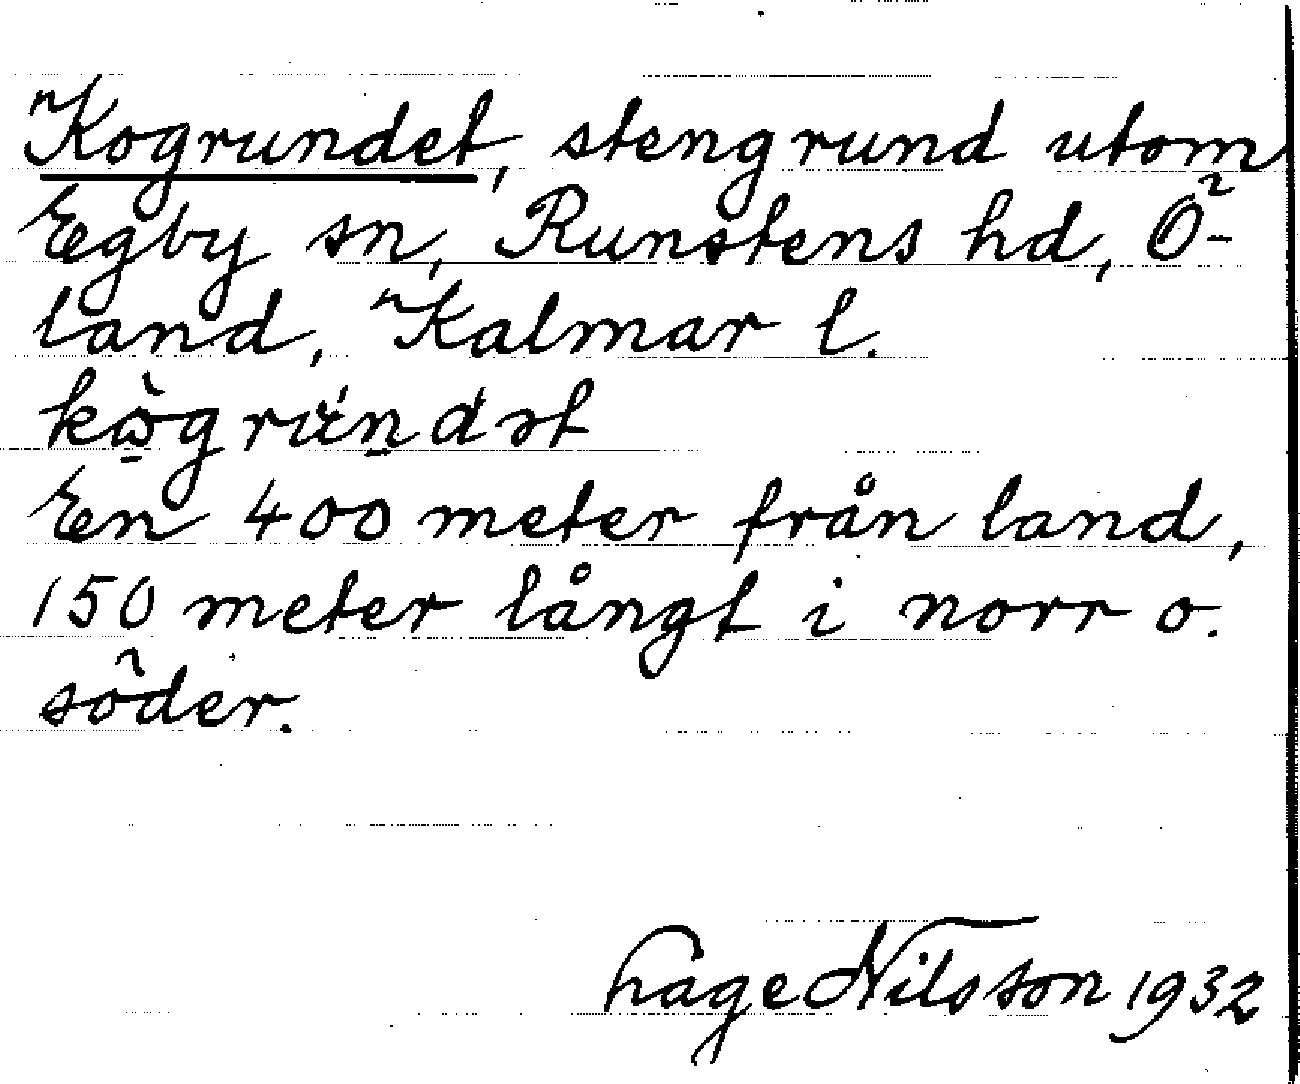 Kogrundet, stengrund utom
Egby sn, Runstens hd, Ö-
land, Kalmar l.
En 400 meter från land,
150 meter långt i norr o.
söder.
Nilsson 1932